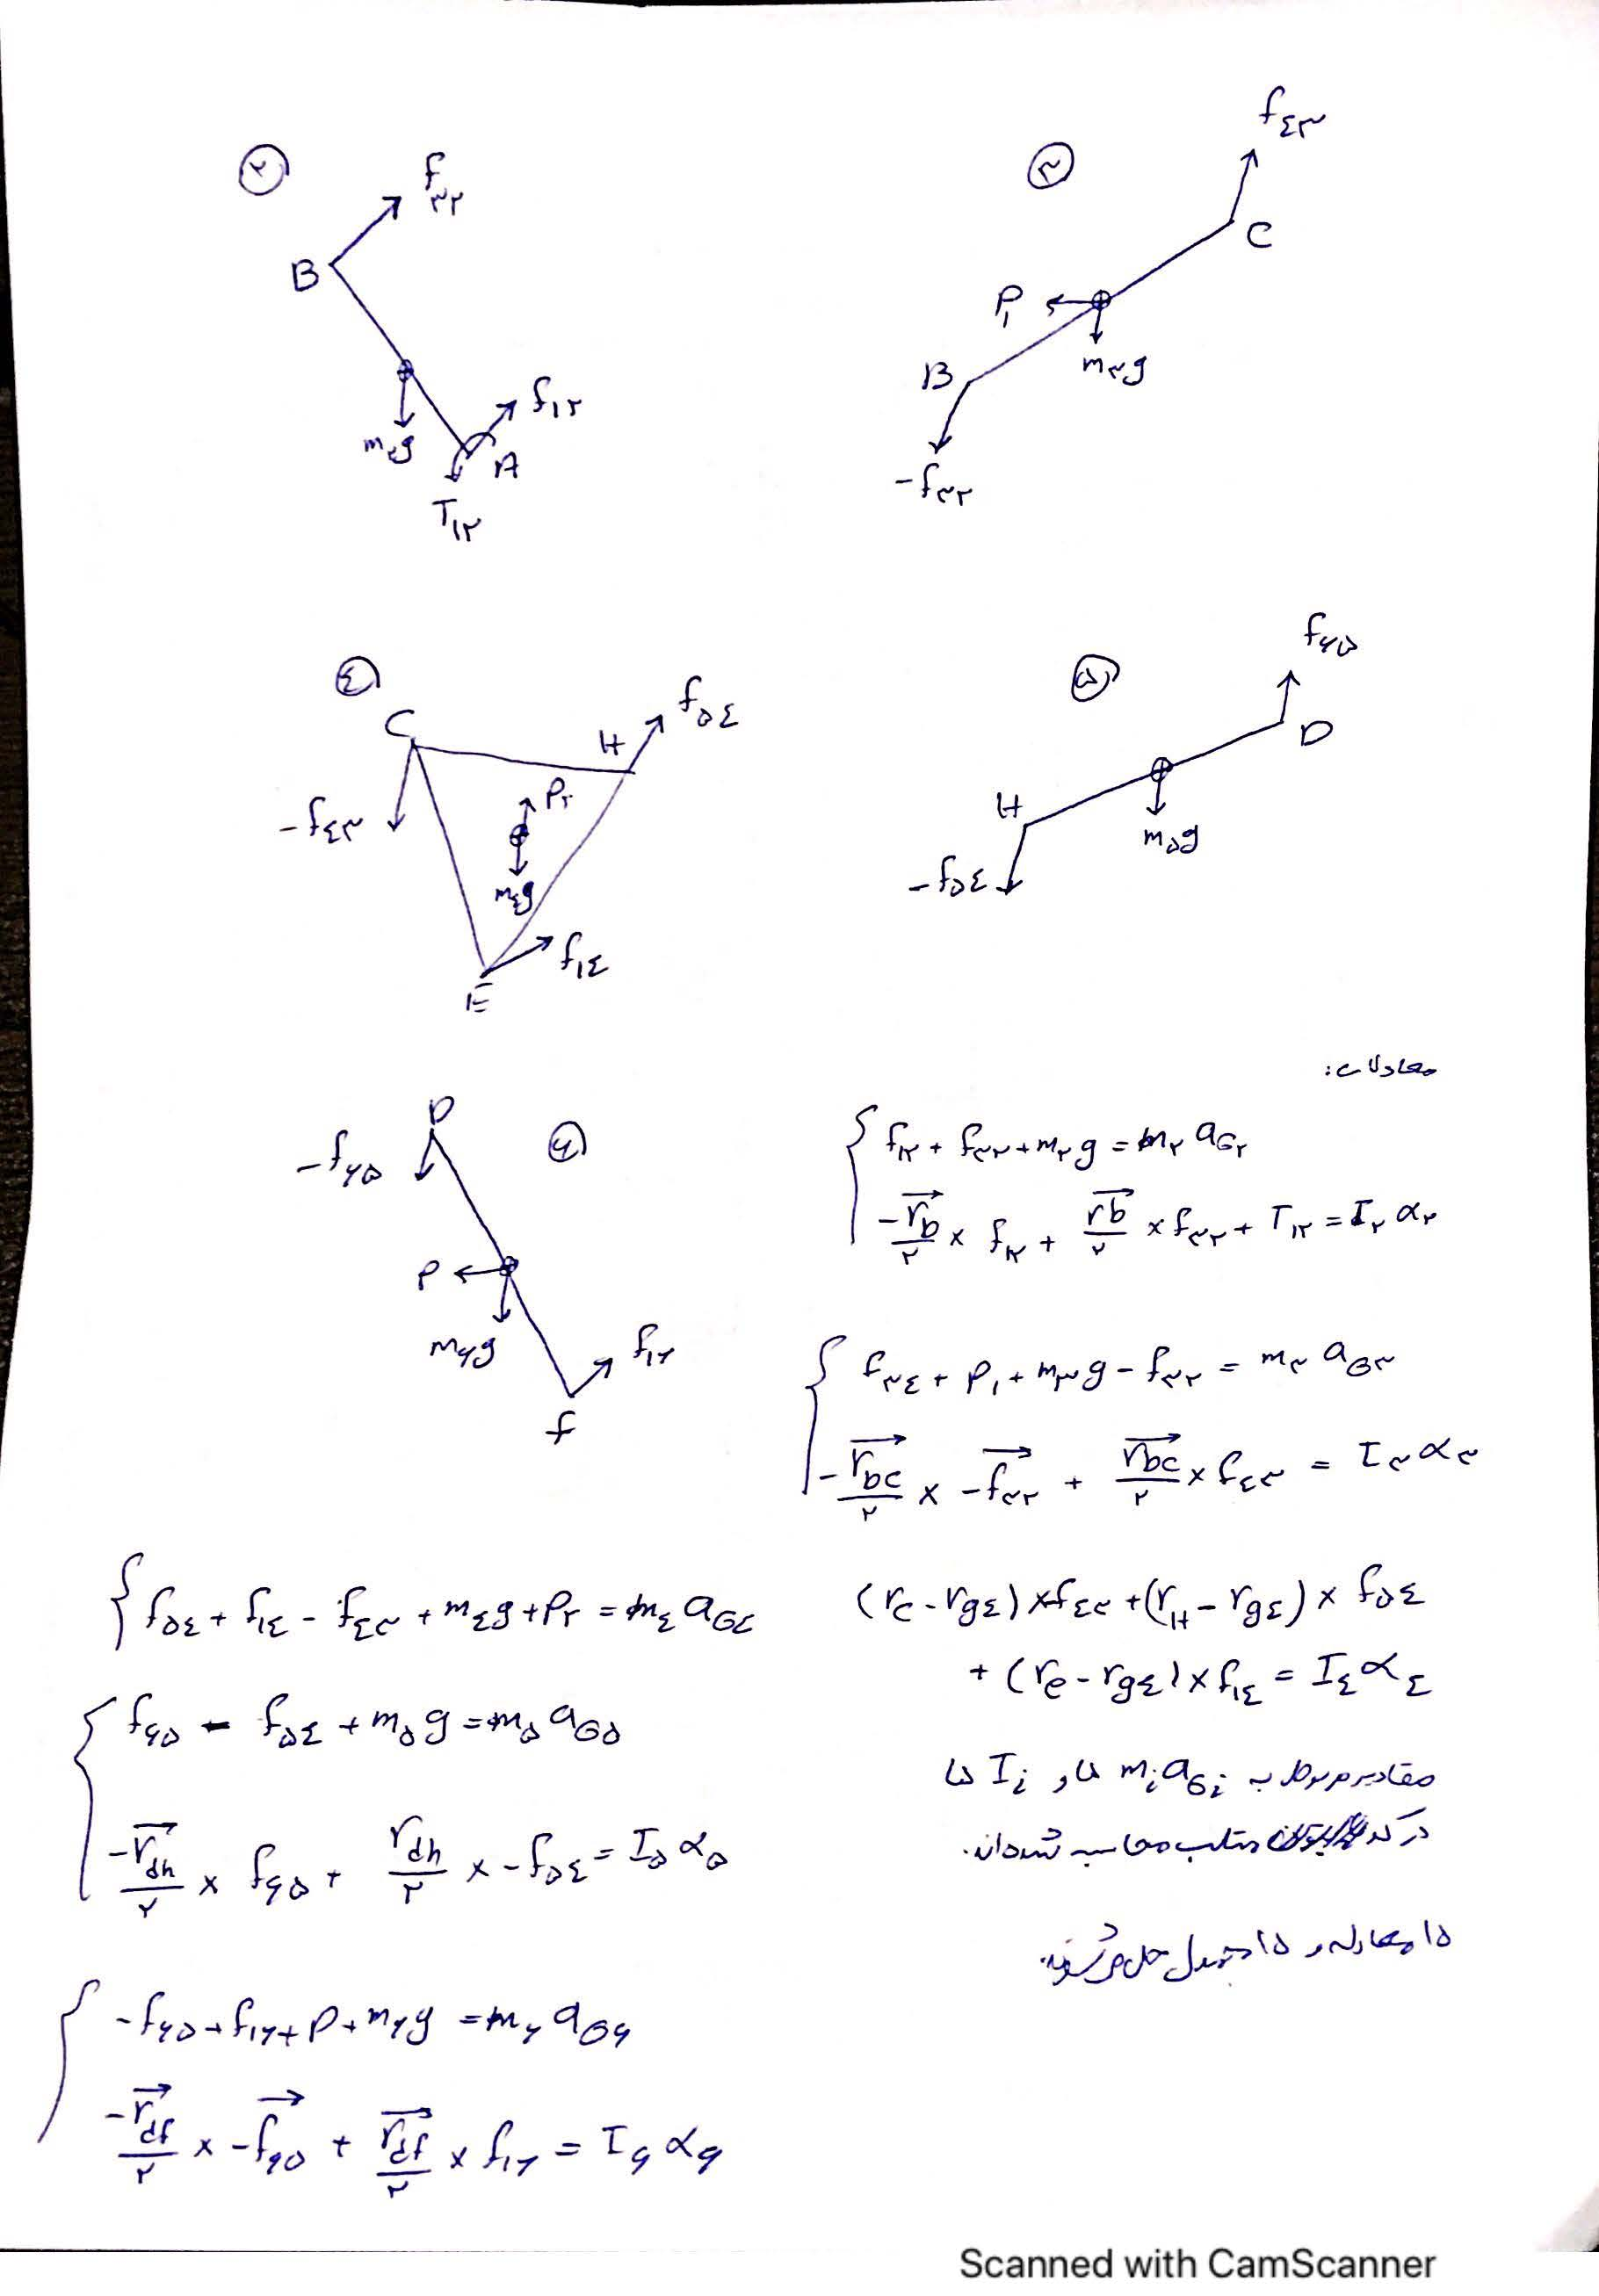 ۲
f۳۲
B
m۲g
f۱۲
A
T۱۲
۳
f۴۳
C
P۱
m۳g
B
-f۳۲
۴
C
H
f۵۴
-f۴۳
P۲
m۴g
f۱۴
E
۵
f۶۵
D
H
m۵g
-f۵۴
۶
D
-f۶۵
P
m۶g
f۱۶
f
معادلات:
f۱۲ + f۳۲ + m۲g = m۲ aG۲
-r⃗b/۲ × f۱۲ + r⃗b/۲ × f۳۲ + T۱۲ = I۲ α۲
f۳۴ + P۱ + m۳g - f۳۲ = m۳ aG۳
-r⃗bc/۲ × -f⃗۳۲ + r⃗bc/۲ × f۴۳ = I۳ α۳
f۵۴ + f۱۴ - f۴۳ + m۴g + P۲ = m۴ aG۴
(rc - rg۴) × f۴۳ + (rH - rg۴) × f۵۴
+ (re - rg۴) × f۱۴ = I۴ α۴
f۶۵ - f۵۴ + m۵g = m۵ aG۵
-r⃗dh/۲ × f۶۵ + rdh/۲ × -f۵۴ = I۵ α۵
-f۶۵ + f۱۶ + P + m۶g = m۶ aG۶
-r⃗df/۲ × -f⃗۶۵ + r⃗df/۲ × f۱۶ = I۶ α۶
مقادیر مربوط به miaGi ها و Ii ها
در کد متلب محاسبه شده‌اند.
۱۵ معادله و ۱۵ مجهول حل می‌شوند.
Scanned with CamScanner